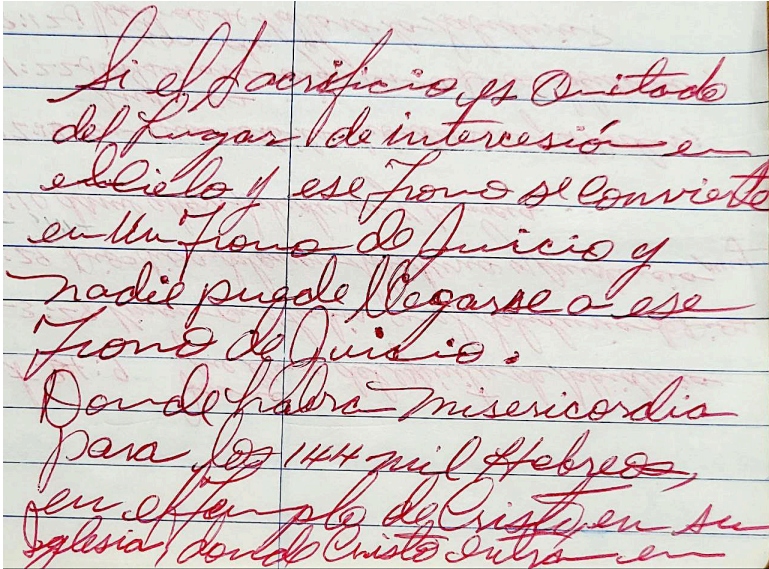 Si el Sacrificio, es Quitado
del Lugar de intercesión en
el Cielo y ese Trono se Convierte
en un Trono de Juicio y
nadie puede llegarse a ese
Trono de Juicio.
Donde habra misericordia
para los 144 mil Hebreos,
en el Templo de Cristo en su
Iglesia, donde Cristo entra en